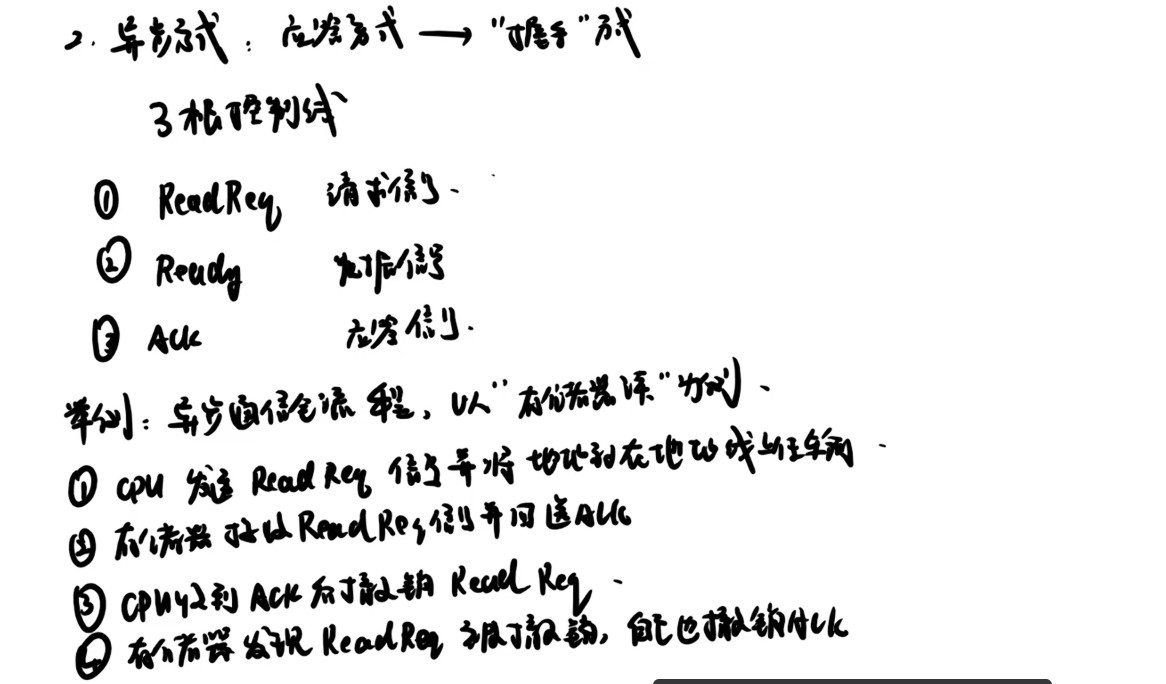 2. 异步方式：应答方式 → "握手"方式
3根控制线
① ReadReq 请求信号.
② Ready 数据信号
③ Ack 应答信号.
举例：异步通信全流程，以"存储器读"为例、
① CPU 发送 ReadReq 信号并将地址放在地址线上
② 存储器接收ReadReq信号并回送Ack
③ CPU收到 Ack 后撤销 ReadReq
④ 存储器发现 ReadReq 被撤销，自己也撤销Ack